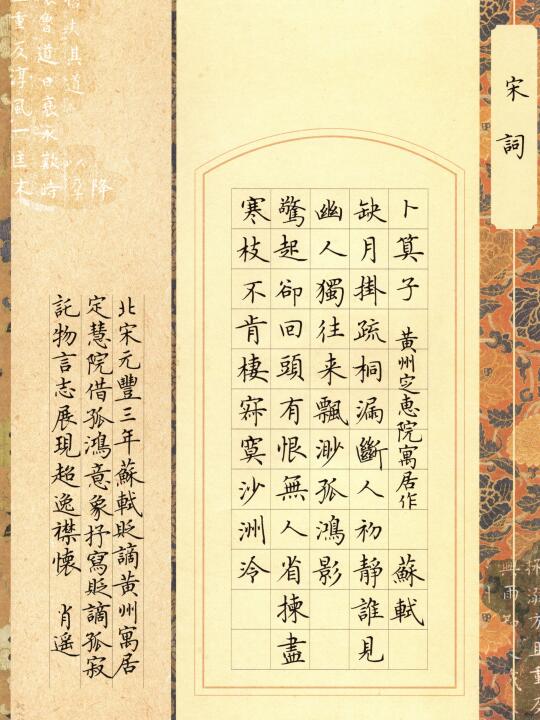 宋詞
卜算子 黃州定惠院寓居作 蘇軾
缺月掛疏桐漏斷人初靜誰見
幽人獨往来飄渺孤鴻影
驚起卻回頭有恨無人省揀盡
寒枝不肯棲寂寞沙洲泠
北宋元豐三年蘇軾貶謫黃州寓居
定慧院借孤鴻意象抒寫貶謫孤寂
託物言志展現超逸襟懷 肖遥
降
扶其道
魯道日衰永歎時
重反淳風一匡末